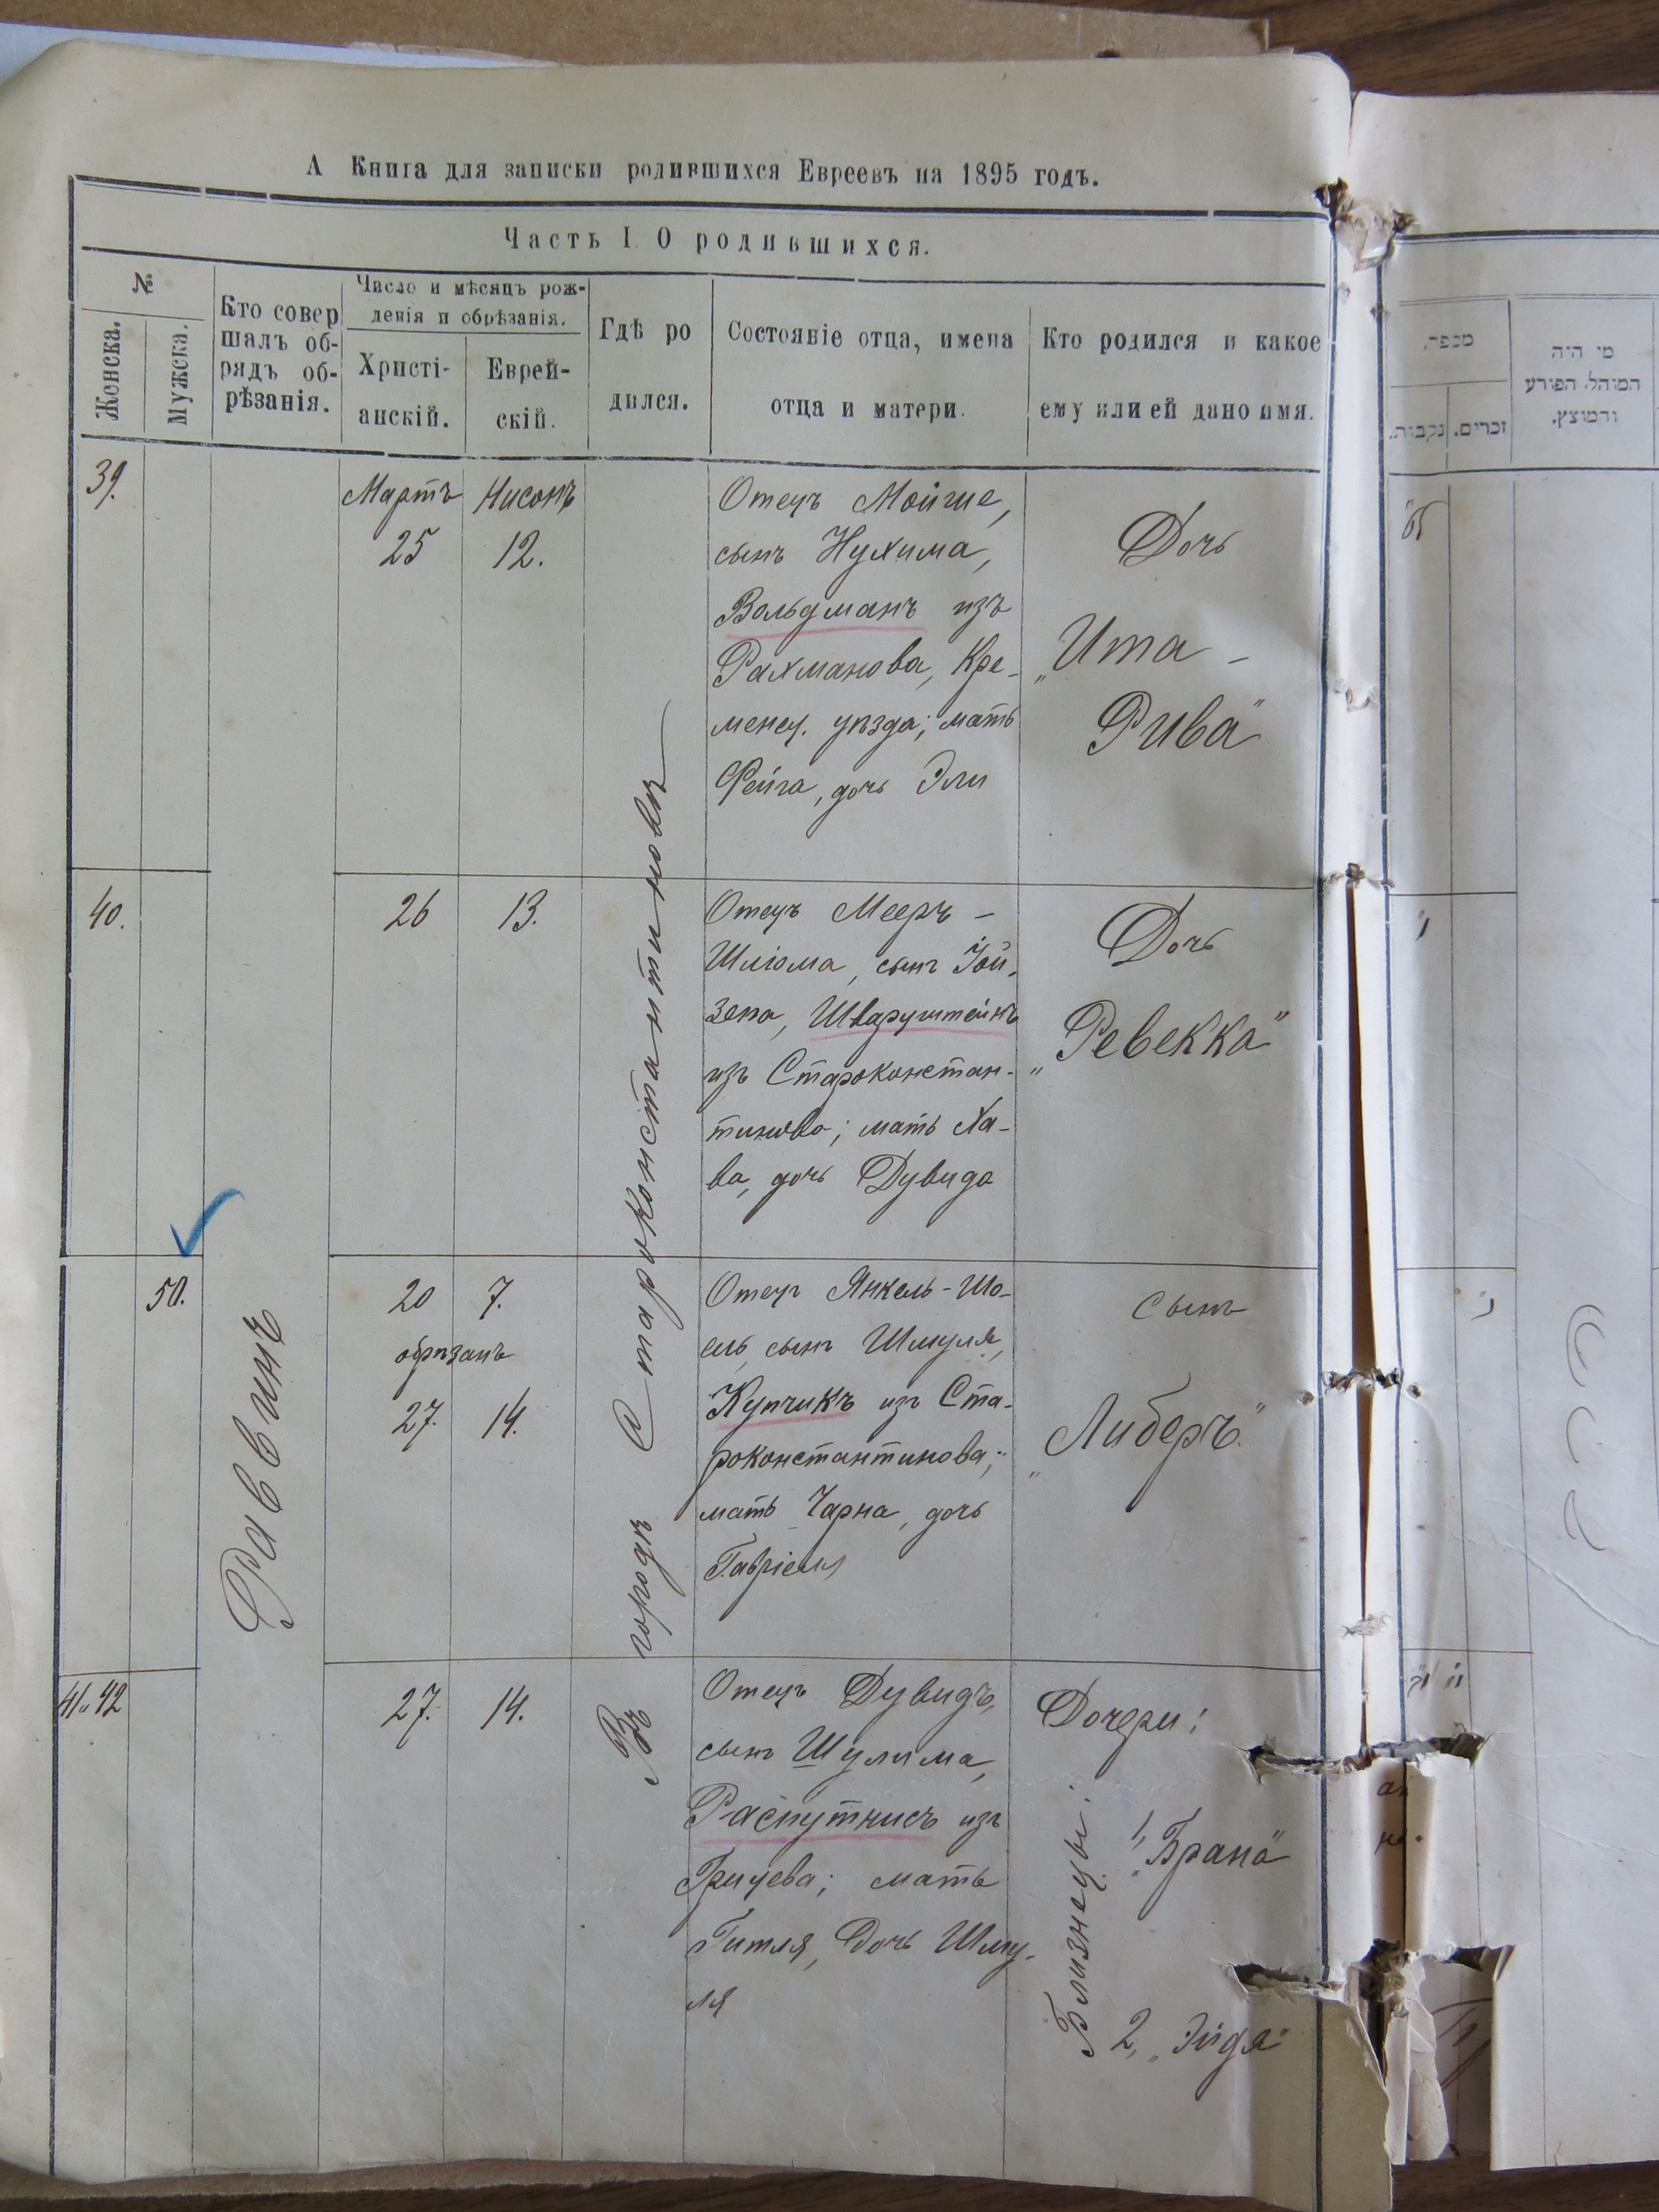 А Книга для записки родившихся Евреевъ на 1895 годъ.
Часть I О родившихся.
№
Женска.
Мужска.
Кто совер
шалъ об-
рядъ об-
рѣзанія.
Число и мѣсяцъ рож-
денія и обрѣзанія.
Христі-
анскій.
Еврей-
скій.
Гдѣ ро
дился.
Состояніе отца, имена
отца и матери.
Кто родился и какое
ему или ей дано имя.
Раввинъ
Въ городѣ Староконстантиновѣ
39.
Мартъ Нисонъ
25 12.
Отецъ Мойше,
сынъ Нухима,
Вольдманъ изъ
Рахманова, Кре-
менец. уѣзда; мать
Фейга, дочь Эли
Дочь
„Ита -
Рива"
40.
26 13.
Отецъ Мееръ -
Шліома, сынъ Іой-
зепа, Шварцштейнъ
изъ Староконстан-
тинова; мать Ха-
ва, дочь Дувида
Дочь
„Ревекка"
50.
20 7.
обрѣзанъ
27. 14.
Отецъ Янкель-Шо-
ель, сынъ Шмуля,
Купчикъ изъ Ста-
роконстантинова;
мать Чарна, дочь
Гавріеля
Сынъ
„Либеръ"
41 и 42
27. 14.
Отецъ Дувидъ,
сынъ Шулима,
Распутнисъ изъ
Грицева; мать
Гитля, дочь Шму-
ля
Дочери:
Близнецы:
1, „Брана"
2, „Эйдя"
מספר.
נקבות.
זכרים.
מי היה
המוהל. הפורע
והמוצץ.